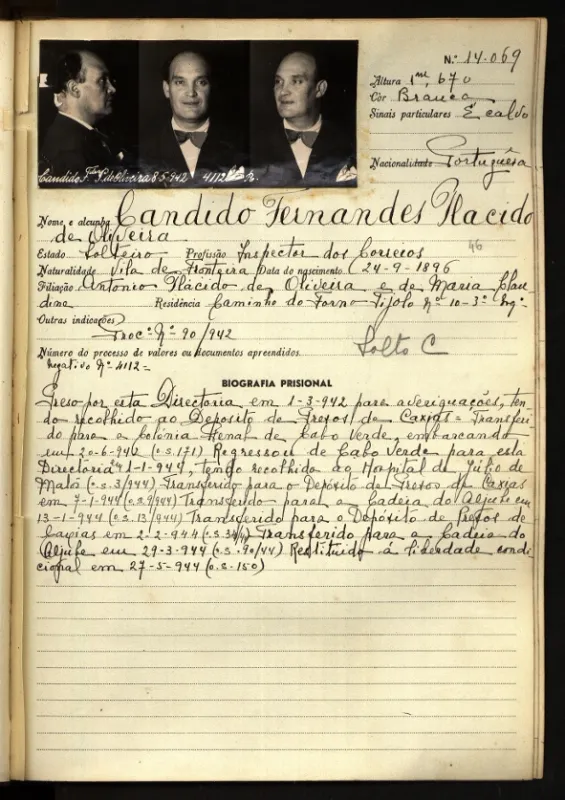 N.º 14.069
Altura 1m,670
Côr Branca
Sinais particulares É calvo
Nacionalidade Portuguêsa
Candido F. P. de Oliveira 8.5.942 4112
Nome e alcunha Candido Fernandes Placido
de Oliveira
46
Estado Solteiro Profissão Inspector dos Correios
Naturalidade Vila de Fronteira Data do nascimento 24-9-1896
Filiação Antonio Plácido de Oliveira e de Maria Clau
dina Residência Caminho do Forno Tijolo Nº 10-3º Esqº
Outras indicações
Procº Nº 90/942
Solto C
Número do processo de valores ou documentos apreendidos
Negativo Nº 4112=
BIOGRAFIA PRISIONAL
Preso por esta Directoria em 1-3-942 para averiguações, ten
do recolhido ao Deposito de Presos de Caxias= Transferi
do para a Colónia Penal de Cabo Verde, embarcando
em 20-6-942 (o.s. 171) Regressou de Cabo Verde para esta
Directoria em 1-1-944, tendo recolhido ao Hospital de Júlio de
Matos (o.s. 3/944) Transferido para o Depósito de Presos de Caxias
em 7-1-944 (o.s. 9/944) Transferido para a Cadeia do Aljube em
13-1-944 (o.s. 13/944) Transferido para o Depósito de Presos de
Caxias em 2-2-944 (o.s. 34/44) Transferido para a Cadeia do
Aljube em 29-3-944 (o.s. 90/44) Restituido á liberdade condi
cional em 27-5-944 (o.s. 150)